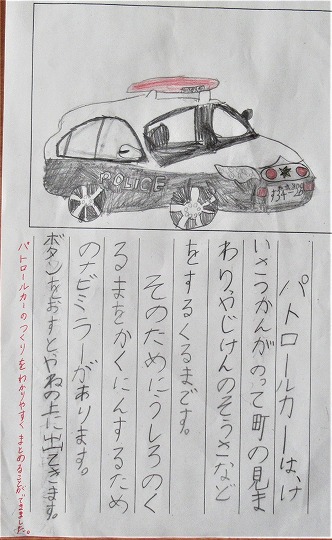 POLICE
パトロールカーは、け
いさつかんがのって町の見ま
わりや、じけんのそうさなど
をするくるまです。
そのためにうしろのく
るまをかくにんするため
のナビミラーがあります。
ボタンをおすとやねの上に出てきます。
パトロールカーのつくりをわかりやすくまとめることができました。